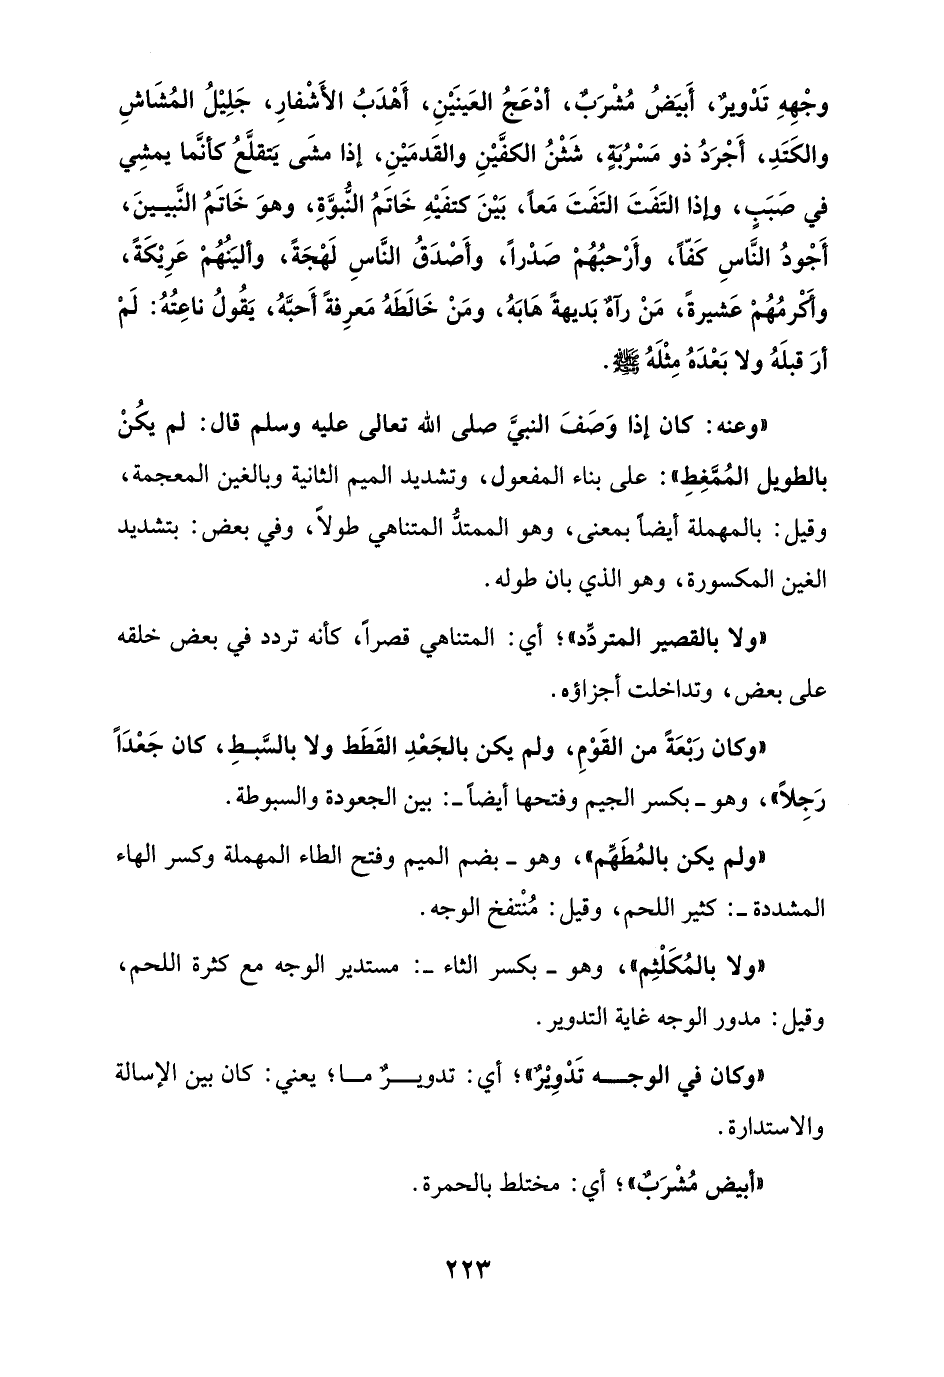 وجْهِهِ تَدْويرٌ، أَبيَضُ مُشْرَبٌ، أدْعَجُ العَينَيْنِ، أَهْدَبُ الأَشْفارِ، جَلِيْلُ المُشَاشِ
والكَتَدِ، أَجْرَدُ ذو مَسْرُبَةٍ، شَثْنُ الكفَّيْنِ والقَدمَيْنِ، إذا مشَى يَتقلَّعُ كأنَّما يمشِي
في صَبَبٍ، وإذا التَفَتَ التَفَتَ مَعاً، بَيْنَ كتفَيْهِ خَاتَمُ النُّبوَّةِ، وهوَ خَاتَمُ النَّبيـينَ،
أَجْودُ النَّاسِ كَفّاً، وأَرْحبُهُمْ صَدْراً، وأَصْدَقُ النَّاسِ لَهْجَةً، وأليَنُهُمْ عَرِيْكَةً،
وأَكْرمُهُمْ عَشيرةً، مَنْ رآهُ بَديهةً هَابَهُ، ومَنْ خَالَطَهُ مَعرِفةً أَحبَّهُ، يَقُولُ ناعِتُهُ: لَمْ
أرَ قبلَهُ ولا بَعْدَهُ مِثْلَهُ ﷺ.
«وعنه: كان إذا وَصَفَ النبيَّ صلى الله تعالى عليه وسلم قال: لم يكُنْ
بالطويل المُمَّغِطِ»: على بناء المفعول، وتشديد الميم الثانية وبالغين المعجمة،
وقيل: بالمهملة أيضاً بمعنى، وهو الممتدُّ المتناهي طولاً، وفي بعض: بتشديد
الغين المكسورة، وهو الذي بان طوله.
«ولا بالقصير المتردِّد»؛ أي: المتناهي قصراً، كأنه تردد في بعض خلقه
على بعض، وتداخلت أجزاؤه.
«وكان رَبْعَةً من القَوْمِ، ولم يكن بالجَعْدِ القَطَط ولا بالسَّبـطِ، كان جَعْدَاً
رَجِلاً»، وهو ـ بكسر الجيم وفتحها أيضاً ـ: بين الجعودة والسبوطة.
«ولم يكن بالمُطَهَّم»، وهو ـ بضم الميم وفتح الطاء المهملة وكسر الهاء
المشددة ـ: كثير اللحم، وقيل: مُنْتفخ الوجه.
«ولا بالمُكَلْثِم»، وهو ـ بكسر الثاء ـ: مستدير الوجه مع كثرة اللحم،
وقيل: مدور الوجه غاية التدوير.
«وكان في الوجـــه تَدْوِيْرٌ»؛ أي: تدويــرٌ مـا؛ يعني: كان بين الإسالة
والاستدارة.
«أبيض مُشْرَبٌ»؛ أي: مختلط بالحمرة.
٢٢٣